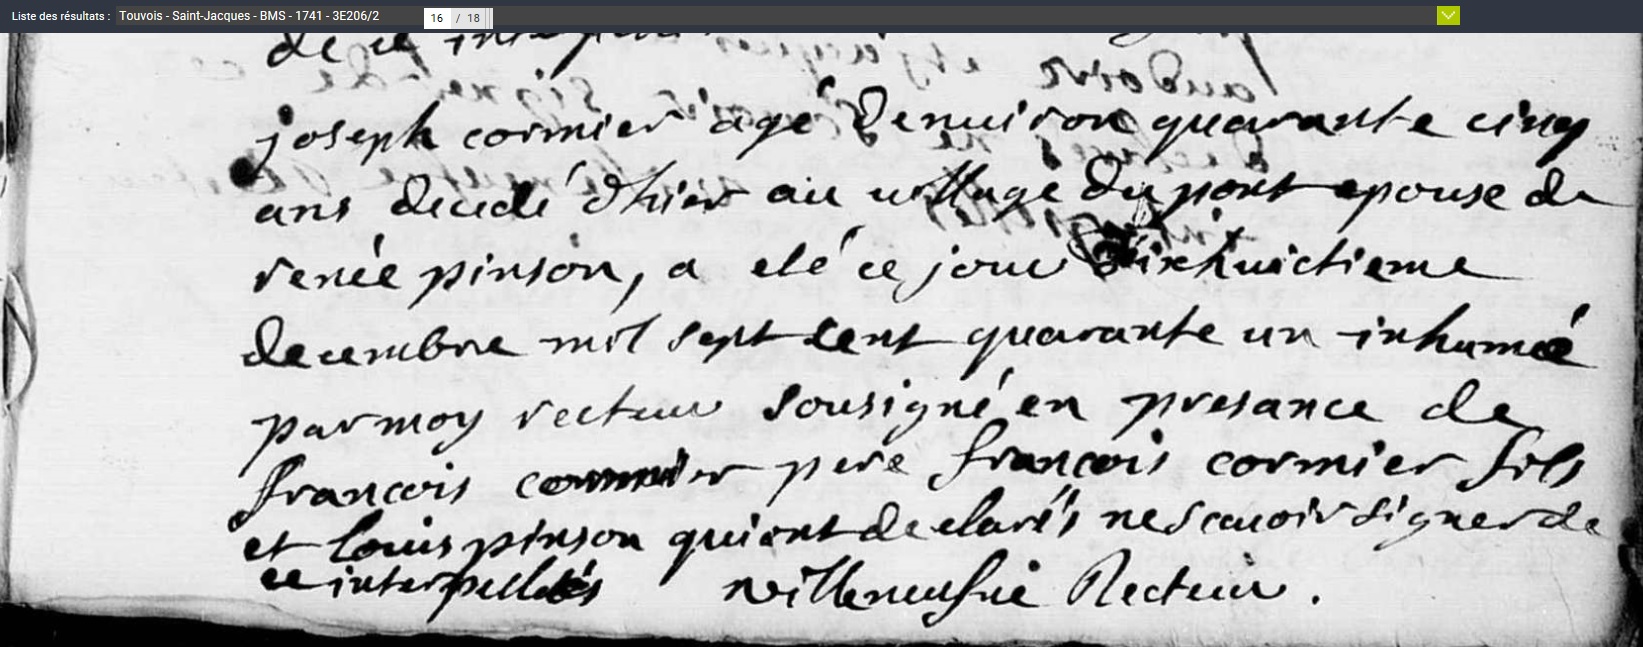 Liste des résultats : Touvois - Saint-Jacques - BMS - 1741 - 3E206/2 16 / 18
de ce
joseph cormier agé denuiron quarante cinq
ans decedé d'hier au uillage du pont epouse de
renée pinson, a eté ce jour dixhuictieme
decembre mil sept cent quarante un inhumé
par moy recteur sousigné en presance de
francois cormier pere francois cormier fils
et louis pinson qui ont declarés ne scauoir signer de
ce interpellés Recteur .